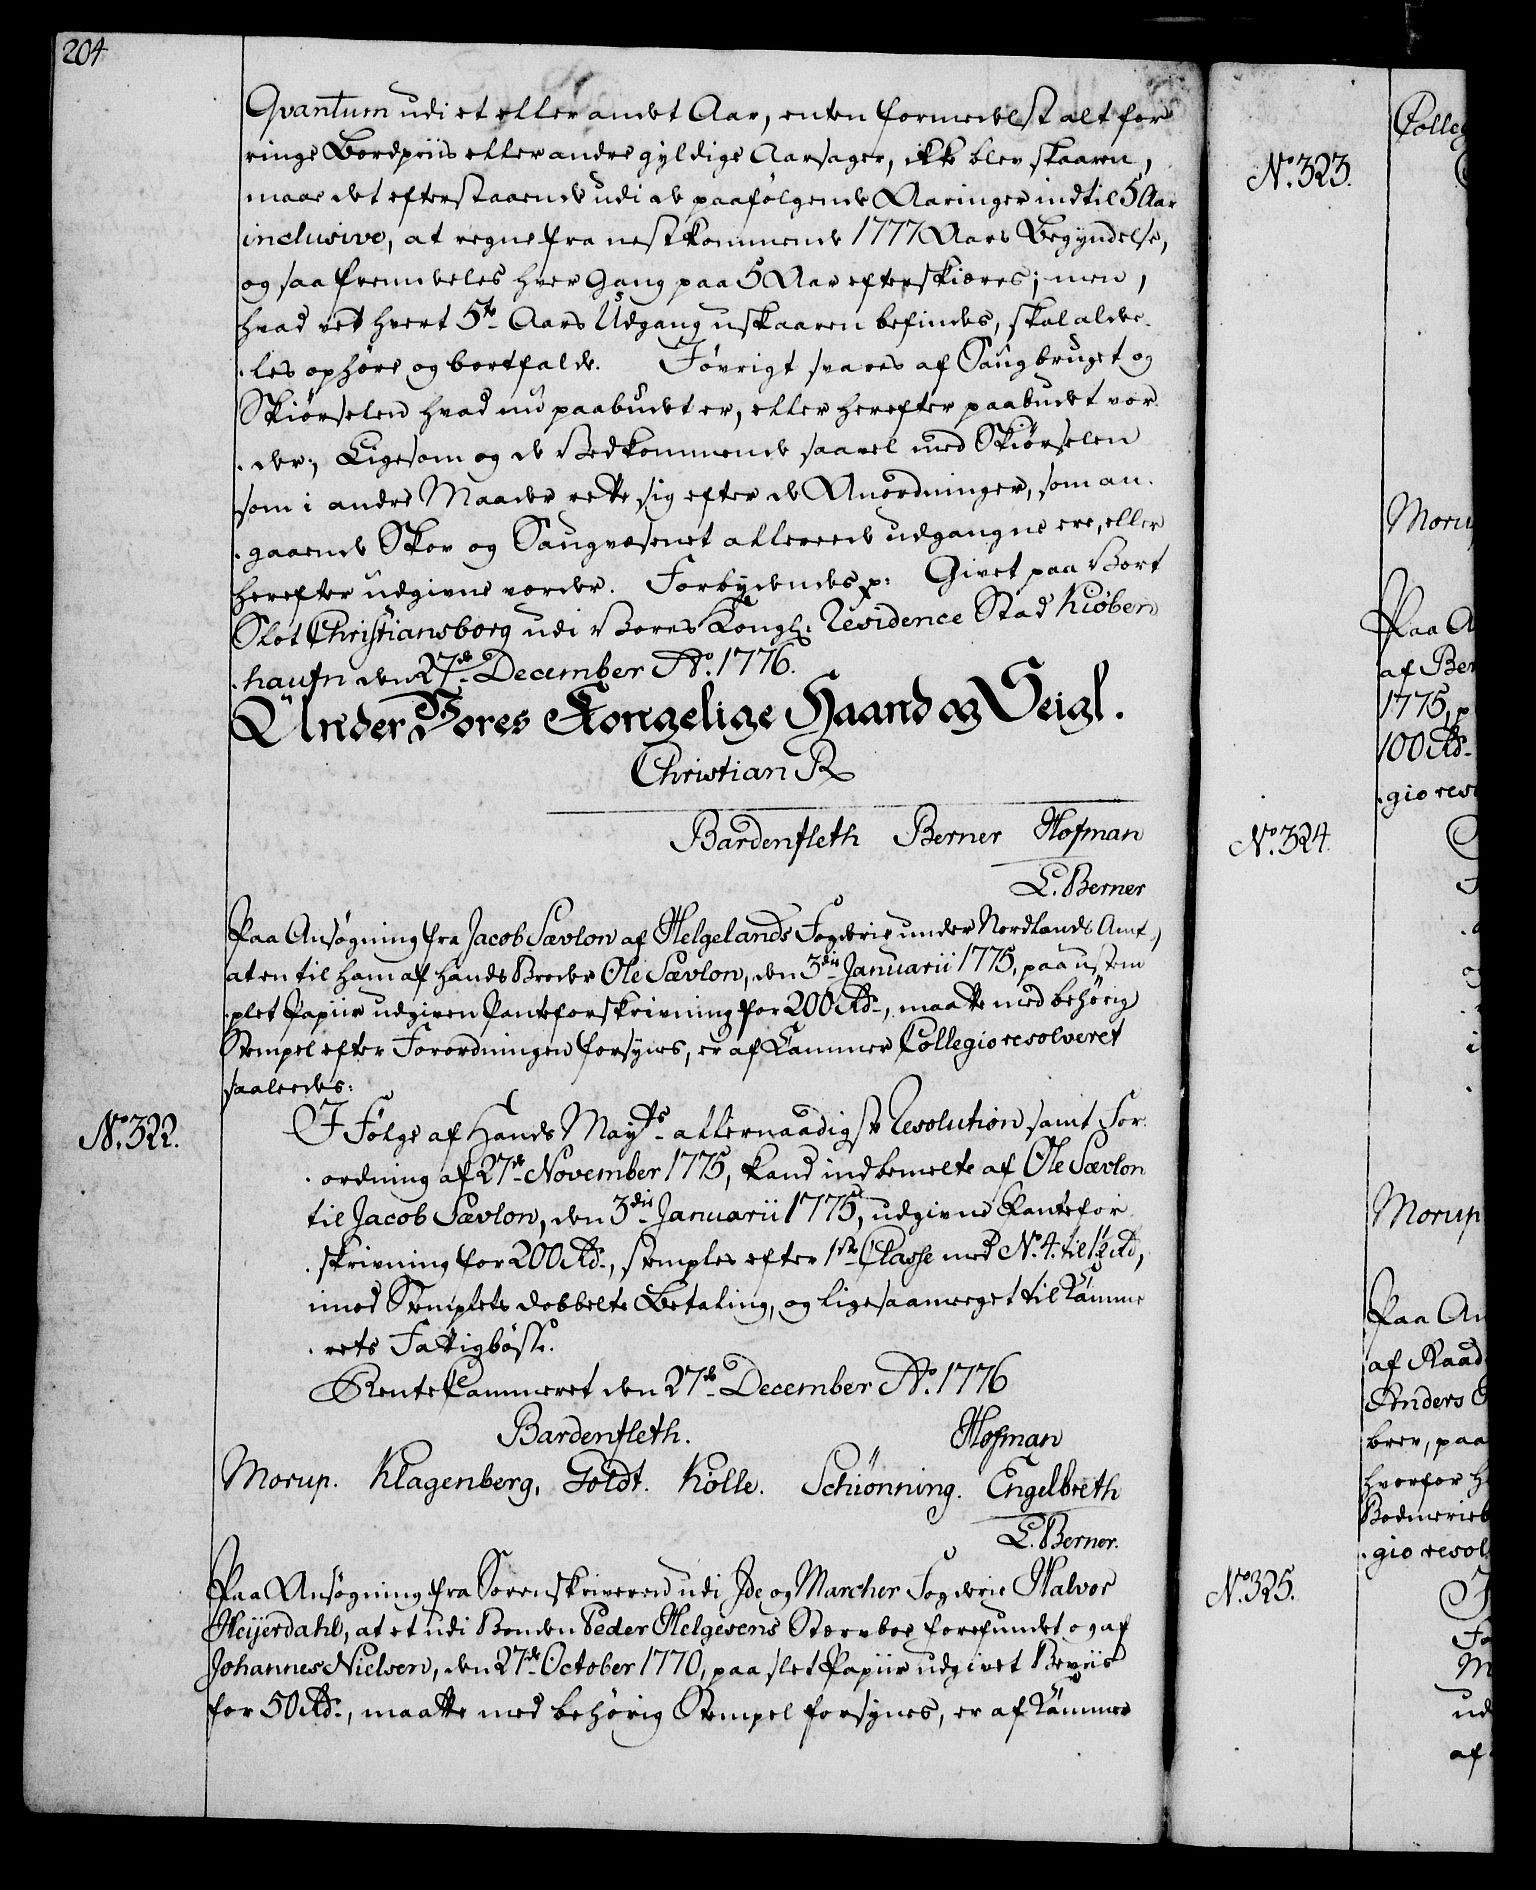 204
Qvantum udi et eller andet Aar, enten formedelst alt for
ringe Bordpriis eller andre gyldige Aarsager, ikke blev skaaren,
maae det efterstaaende udi de paafølgende Aaringer indtil 5 Aar
inclusive, at regne fra nestkommende 1777 Aars Begyndelse,
og saa fremdeles hver Gang paa 5 Aar efterskiæres; men,
hvad ved hvert 5te Aars Udgang uskaaren befindes, skal alde-
les ophøre og bortfalde. Jøvrigt svares af Saugbruget og
Skiørselen hvad nu paabudet er, eller herefter paabudet vor
der; Ligesom og de Vedkommende saavel med Skiørselen
som i andre Maader rette sig efter de Anordninger, som an-
gaaende Skov og Saugvæsenet allereede udgangne ere, eller
herefter udgivne vorder. Forbydendes p: Givet paa Vort
Slot Christiansborg udi Vores Kongl: Residence Stad Kiøben
haufn den 27de December Ao. 1776.
Under Vores Kongelige Haand og Seigl.
Christian R
Bardenfleth Berner Hofman
L. Berner
Paa Ansøgning fra Jacob Sævlon af Helgelands Fogderie under Nordlands Amt,
at en til ham af hands Broder Ole Sævlon, den 3die Januarii 1775, paa ustem
plet Papiir udgiven Panteforskrivning for 200 Rd., maatte med behørig
Stempel efter Forordningen forsynes, er af Cammer Collegio resolveret
saaleedes:
No. 322.
I Følge af Hands Mayts allernaadigste Resolution samt For-
ordning af 27de November 1775, kand indbemelte af Ole Sævlon
til Jacob Sævlon, den 3die Januarii 1775, udgivne Pantefor
skrivning for 200 Rd., stemples efter 1ste Classe med No. 4. til 1½ Rd,
imod Stemplets dobbelte Betaling, og ligesaameget til Kamme
rets Fattigbøsse.
RenteCammeret den 27de December Ao. 1776
Bardenfleth. Hofman
Morup. Klagenberg. Goldt. Kølle. Schiønning. Engelbreth
L. Berner.
Paa Ansøgning fra Sorenskriveren udi Ide og Marcher Fogderie Halvor
Heijerdahl, at et udi Bonden Peder Helgesens Stervboe forefundet og af
Johannes Nielsen, den 27de October 1770, paa slet Papiir udgivet Beviis
for 50 Rd., maatte med behørig Stempel forsynes, er af Kammer
No. 323.
No. 324.
No. 325.
Colleg
Moru
Paa A
af Ber
1775, p
100 Rd.
gio res
Morup
Paa An
af Raad
Anders
brev, paa
hvorfor h
Bodmerieb
gio resol
J
Fo
M
ud
af